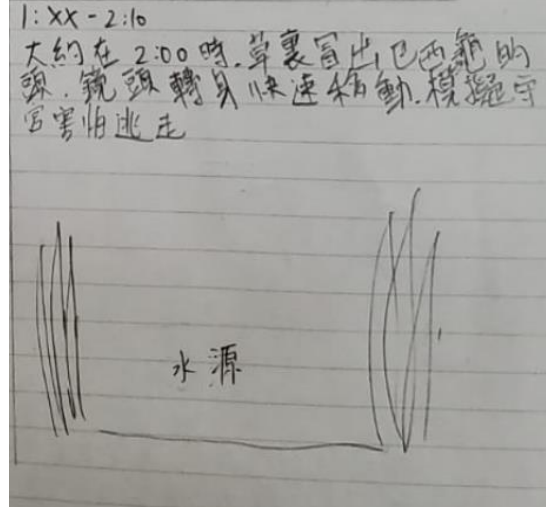 1:XX-2:10
大約在 2:00 時.草裏冒出巴西龜的
頭.鏡頭轉身快速移動.模擬守
宮害怕逃走
水源